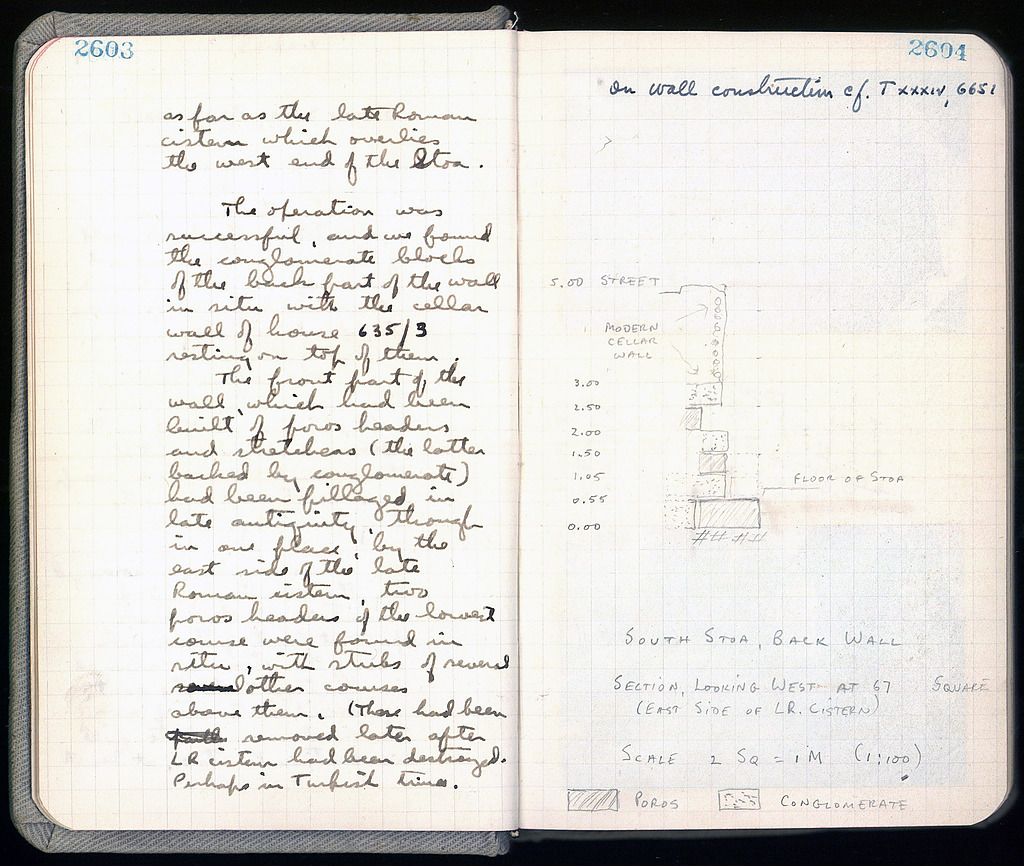 2603
as far as the late Roman
cistern which overlies
the west end of the Stoa.
The operation was
successful, and we found
the conglomerate blocks
of the back part of the wall
in situ with the cellar
wall of house 635/3
resting on top of them.
The front part of the
wall, which had been
built of poros headers
and stretchers (the latter
backed by conglomerate)
had been pillaged in
late antiquity, though
in one place, by the
east side of the late
Roman cistern, two
poros headers of the lowest
course were found in
situ, with stubs of several
other courses
above them. (These had been
removed later after
LR cistern had been destroyed.
Perhaps in Turkish times.
2604
On wall construction cf. T XXXIV, 6651
5.00 STREET
MODERN
CELLAR
WALL
3.00
2.50
2.00
1.50
1.05
FLOOR OF STOA
0.55
0.00
SOUTH STOA, BACK WALL
SECTION, LOOKING WEST AT 67 SQUARE
(EAST SIDE OF L.R. CISTERN)
SCALE 2 SQ = 1 M (1:100)
POROS CONGLOMERATE